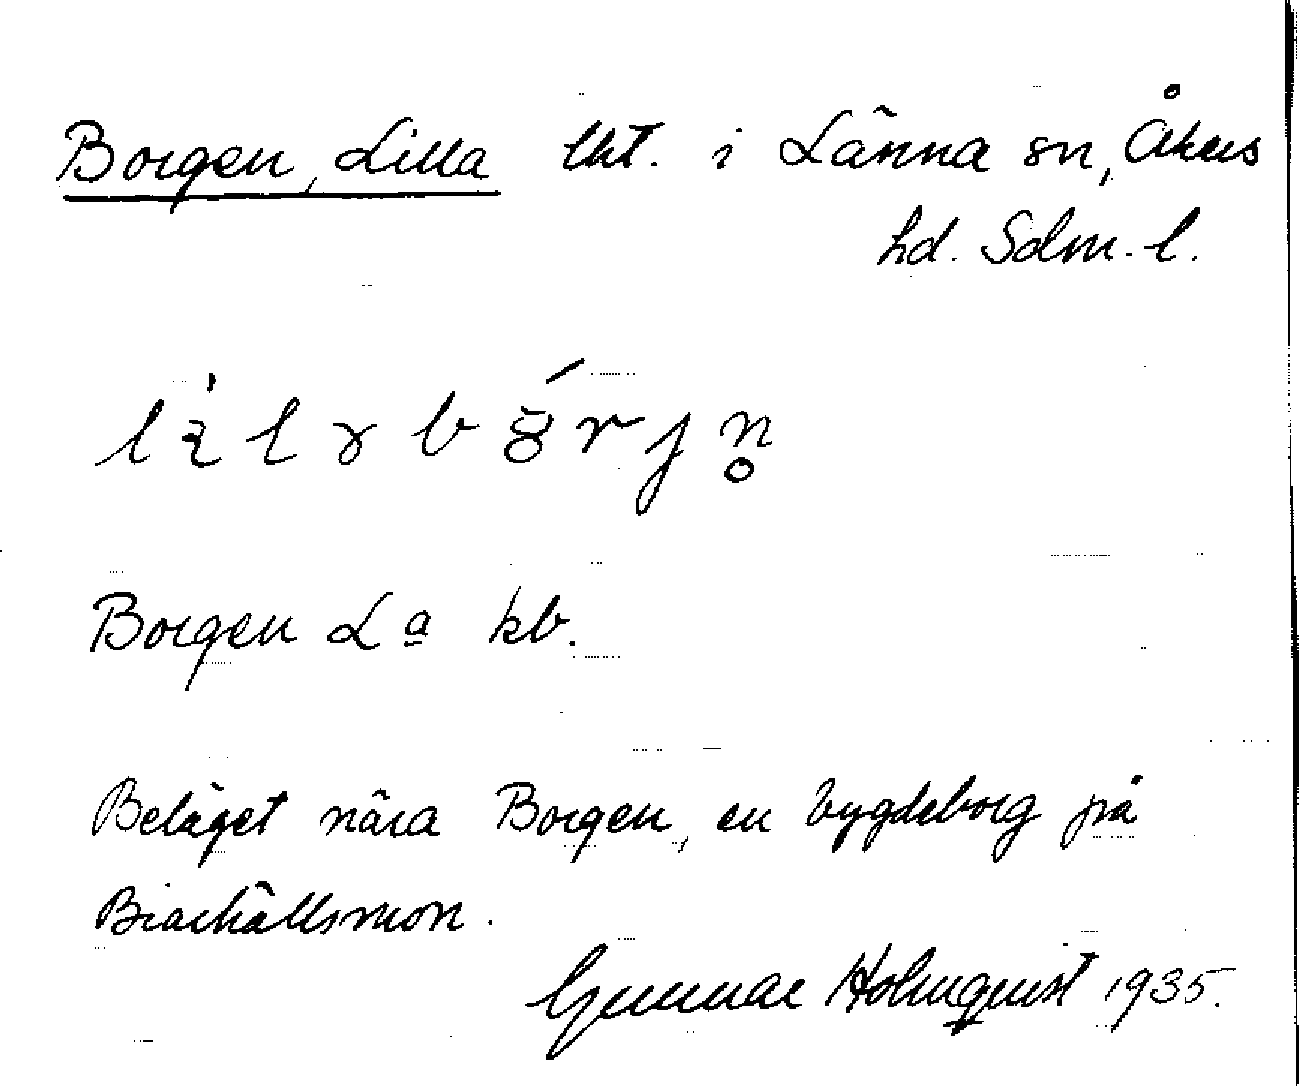 Borgen, Lilla lht. i Länna sn, Åkers
hd. Sdm. l.
Borgen Lª kb.
Beläget nära Borgen, en bygdeborg på
Gunnar Holmquist 1935.